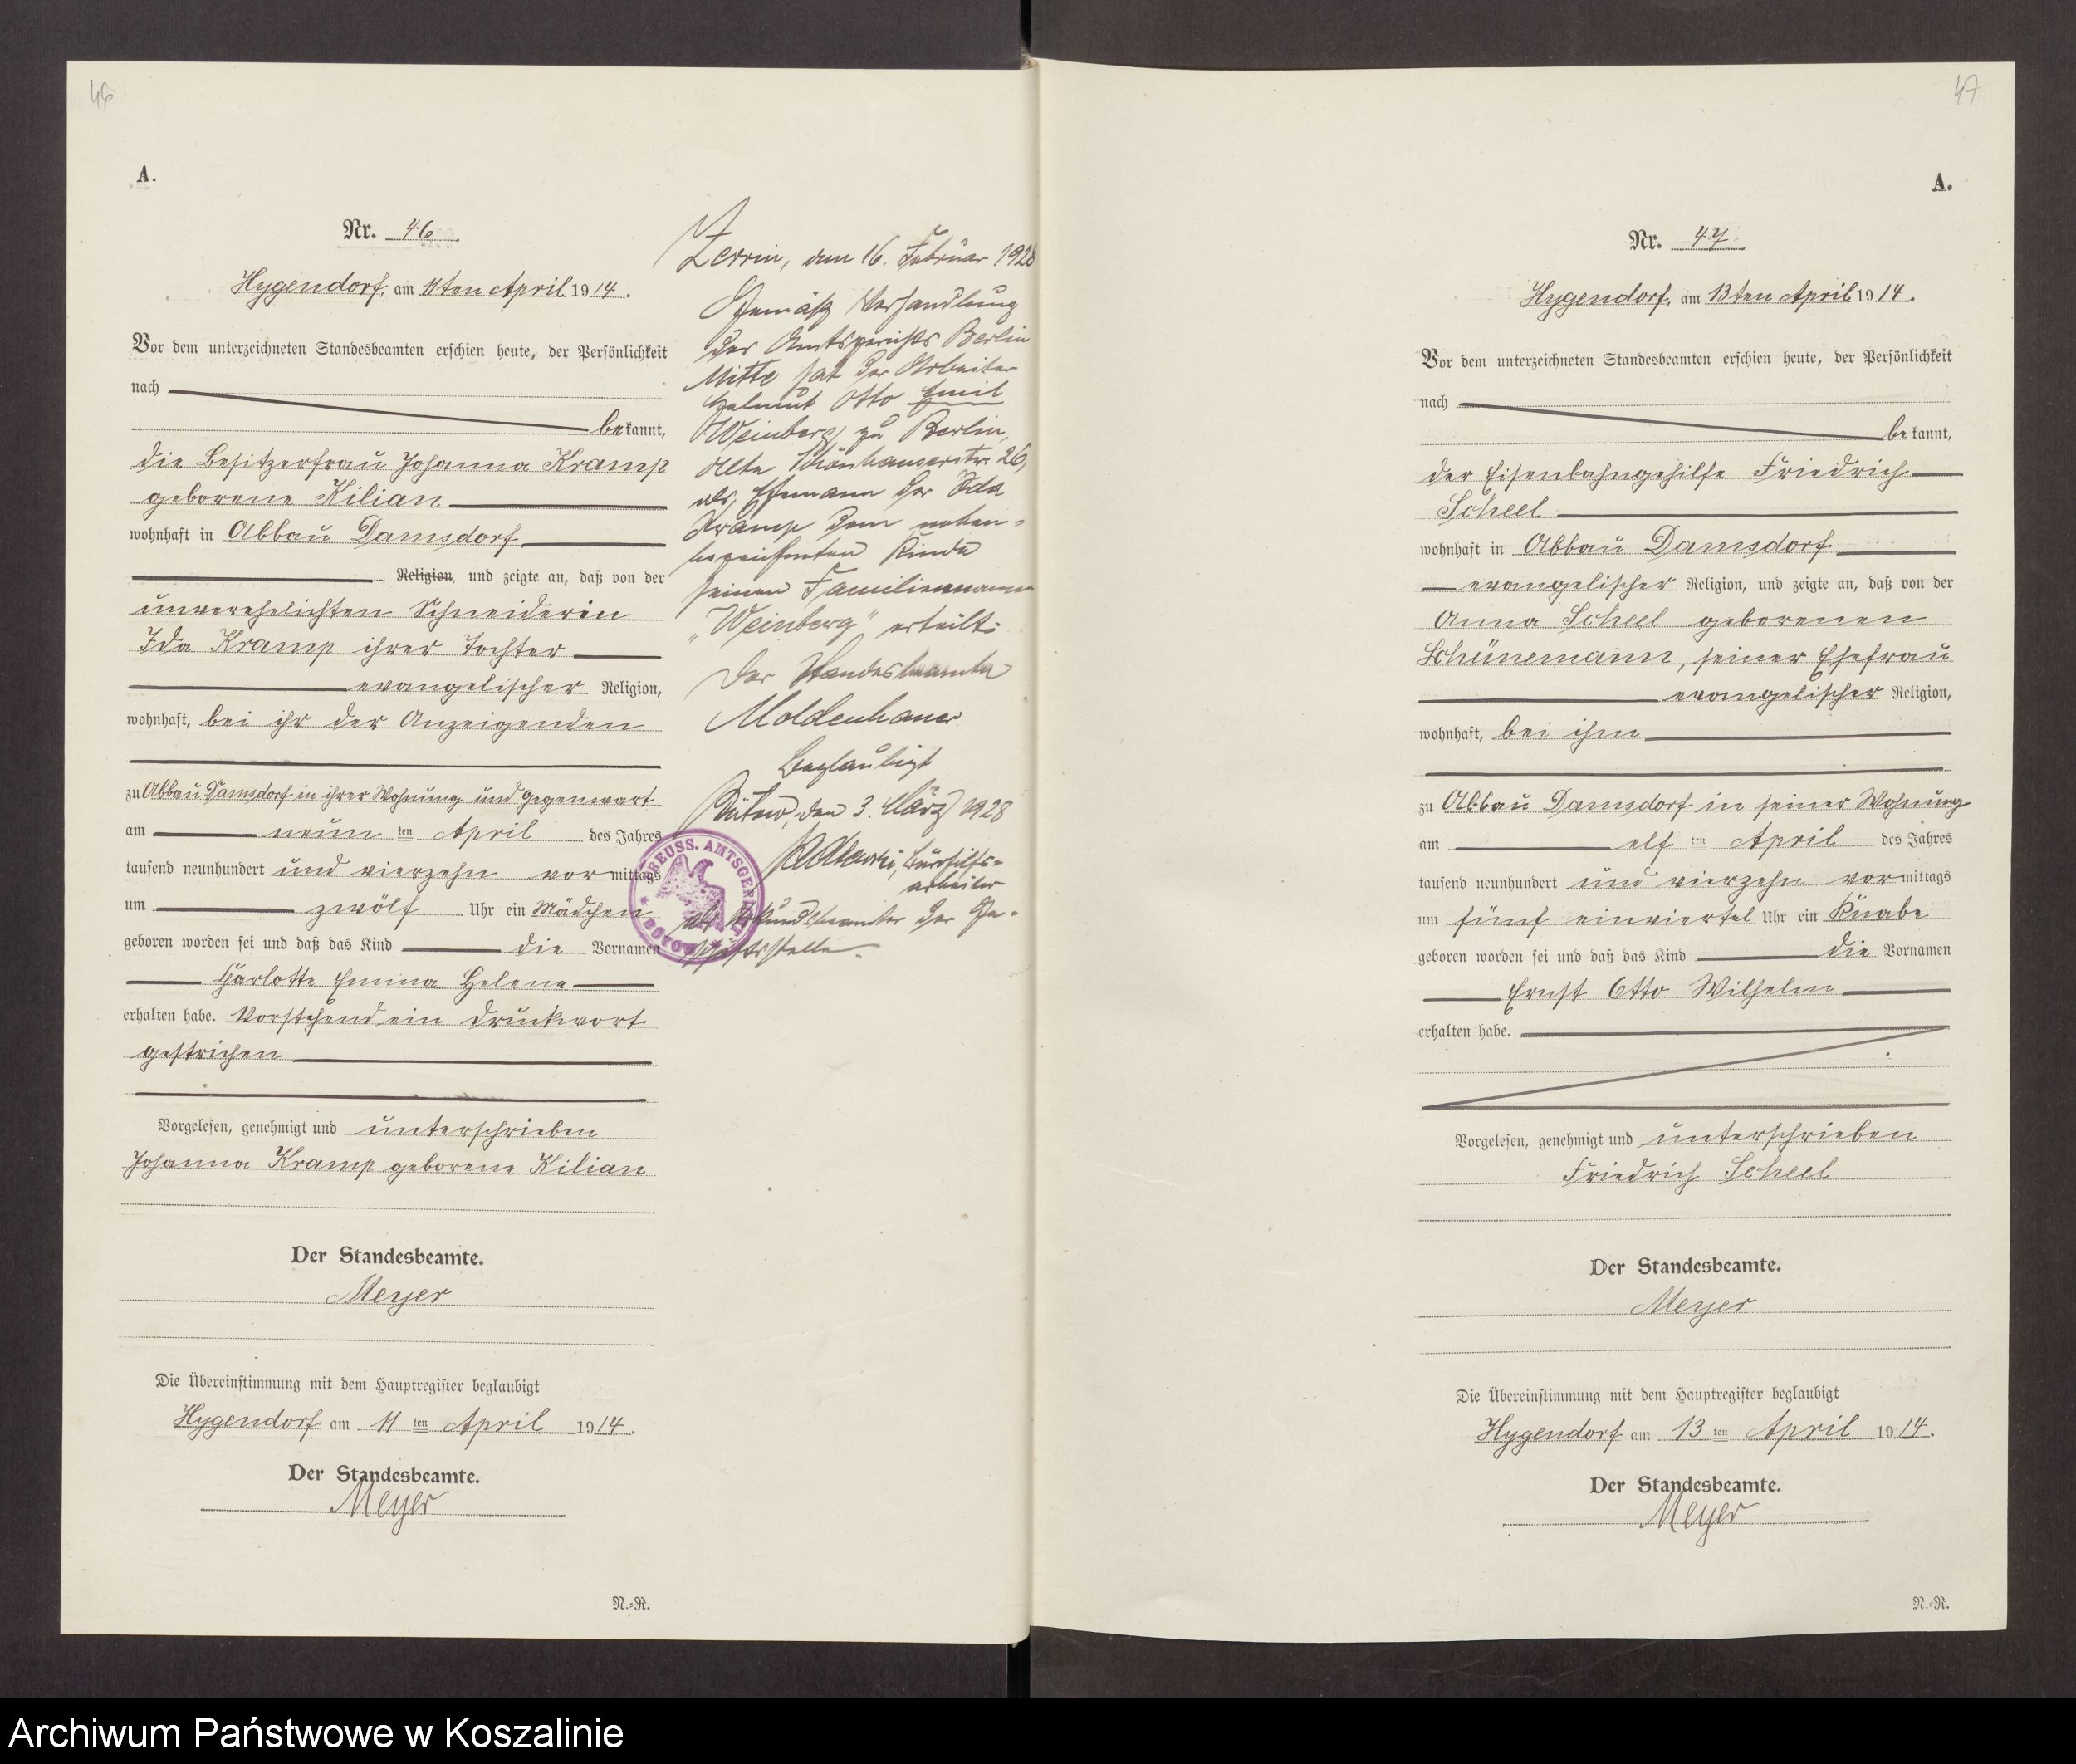 46
A.
Nr. 46
Hygendorf, am 11ten April 1914.
Vor dem unterzeichneten Standesbeamten erschien heute, der Persönlichkeit
nach
bekannt,
die Besitzerfrau Johanna Kramp
geborene Kilian
wohnhaft in Abbau Damsdorf
Religion, und zeigte an, daß von der
unverehelichten Schneiderin
Ida Kramp ihrer Tochter
evangelischer Religion,
wohnhaft, bei ihr der Anzeigenden
zu Abbau Damsdorf in ihrer Wohnung und Gegenwart
am neun ten April des Jahres
tausend neunhundert und vierzehn vormittags
um zwölf Uhr ein Mädchen
geboren worden sei und daß das Kind die Vornamen
Charlotte Emma Helene
erhalten habe. Vorstehend ein Druckwort
gestrichen
Vorgelesen, genehmigt und unterschrieben
Johanna Kramp geborene Kilian
Der Standesbeamte.
Meyer
Die Übereinstimmung mit dem Hauptregister beglaubigt
Hygendorf am 11 ten April 1914.
Der Standesbeamte.
Meyer
N.-R.
Zerrin, den 16. Februar 1928
Gemäß Verhandlung
des Amtsgerichts Berlin
Mitte hat der Arbeiter
Helmut Otto Emil
Weinberg zu Berlin,
Alte Schönhauserstr. 26,
als Ehemann der Ida
Kramp dem neben-
bezeichneten Kinde
seinen Familiennamen
„Weinberg" erteilt.
Der Standesbeamte
Moldenhauer
Beglaubigt
Bütow, den 3. März 1928
Bürohilfs-
arbeiter
als Urkundsbeamter der Ge-
schäftsstelle.
PREUSS. AMTSGERICHT
BÜTOW
47
A.
Nr. 47
Hygendorf, am 13ten April 1914.
Vor dem unterzeichneten Standesbeamten erschien heute, der Persönlichkeit
nach
bekannt,
der Eisenbahngehilfe Friedrich
Scheel
wohnhaft in Abbau Damsdorf
evangelischer Religion, und zeigte an, daß von der
Anna Scheel geborenen
Schünemann, seiner Ehefrau
evangelischer Religion,
wohnhaft, bei ihm
zu Abbau Damsdorf in seiner Wohnung
am elf ten April des Jahres
tausend neunhundert und vierzehn vormittags
um fünf einviertel Uhr ein Knabe
geboren worden sei und daß das Kind die Vornamen
Ernst Otto Wilhelm
erhalten habe.
Vorgelesen, genehmigt und unterschrieben
Friedrich Scheel
Der Standesbeamte.
Meyer
Die Übereinstimmung mit dem Hauptregister beglaubigt
Hygendorf am 13 ten April 1914.
Der Standesbeamte.
Meyer
N.-R.
Archiwum Państwowe w Koszalinie